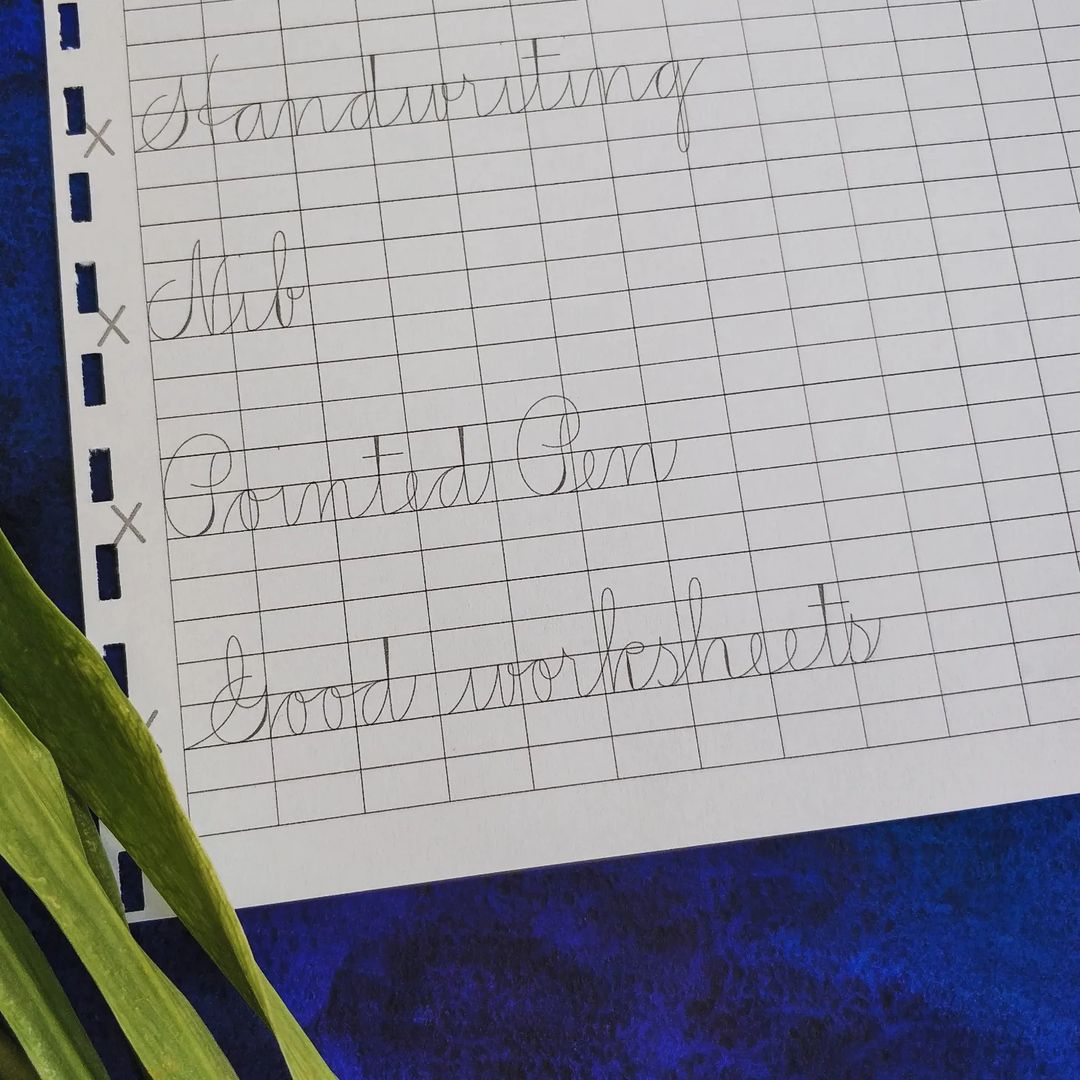 Handwriting
Nib
Pointed Pen
Good worksheets